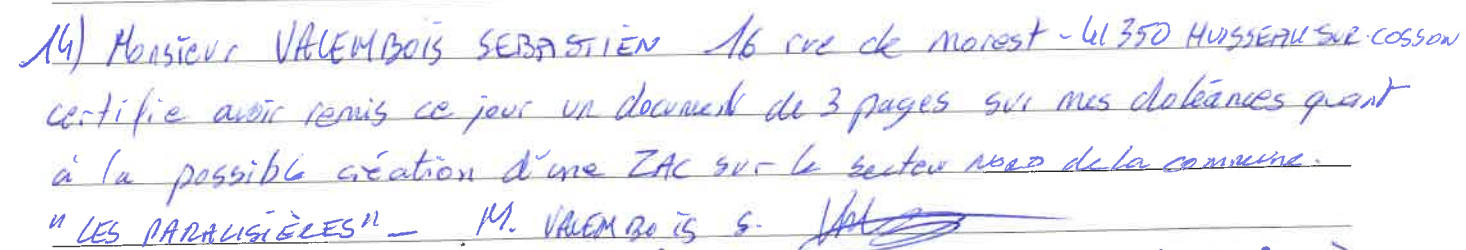 14) Monsieur VALEMBOIS SEBASTIEN 16 rue de Morest - 41350 HUISSEAU SUR COSSON
certifie avoir remis ce jour un document de 3 pages sur mes doléances quant
à la possible création d'une ZAC sur le secteur NORD de la commune.
"LES PARALISIÈRES" - M. VALEMBOIS S.